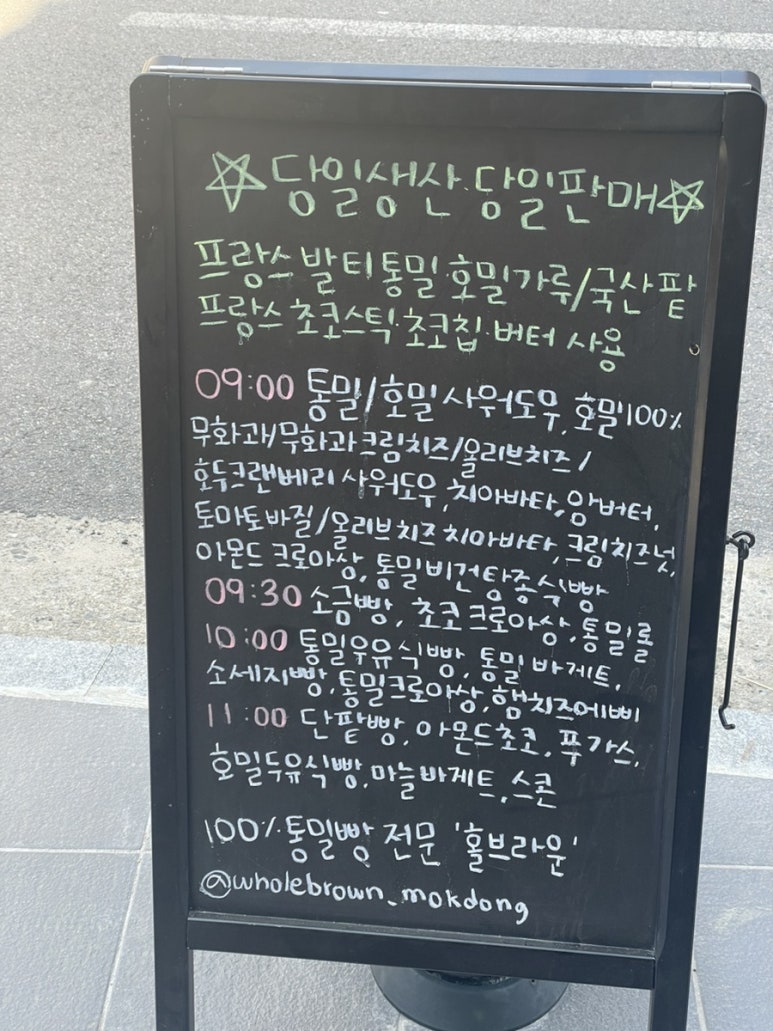 ☆당일생산·당일판매☆
프랑스 발티통밀·호밀가루/국산팥
프랑스 초코스틱·초코칩·버터 사용
09:00 통밀/호밀 사워도우, 호밀100%
무화과/무화과크림치즈/올리브치즈/
호두크랜베리 사워도우, 치아바타, 앙버터,
토마토바질/올리브치즈 치아바타, 크림치즈넛,
아몬드 크로아상, 통밀비건탕종식빵
09:30 소금빵, 초코크로아상, 통밀롤
10:00 통밀우유식빵, 통밀 바게트,
소세지빵, 통밀크로아상, 햄치즈에삐
11:00 단팥빵, 아몬드초코, 푸가스,
호밀두유식빵, 마늘바게트, 스콘
100% 통밀빵 전문 '홀브라운'
@wholebrown_mokdong